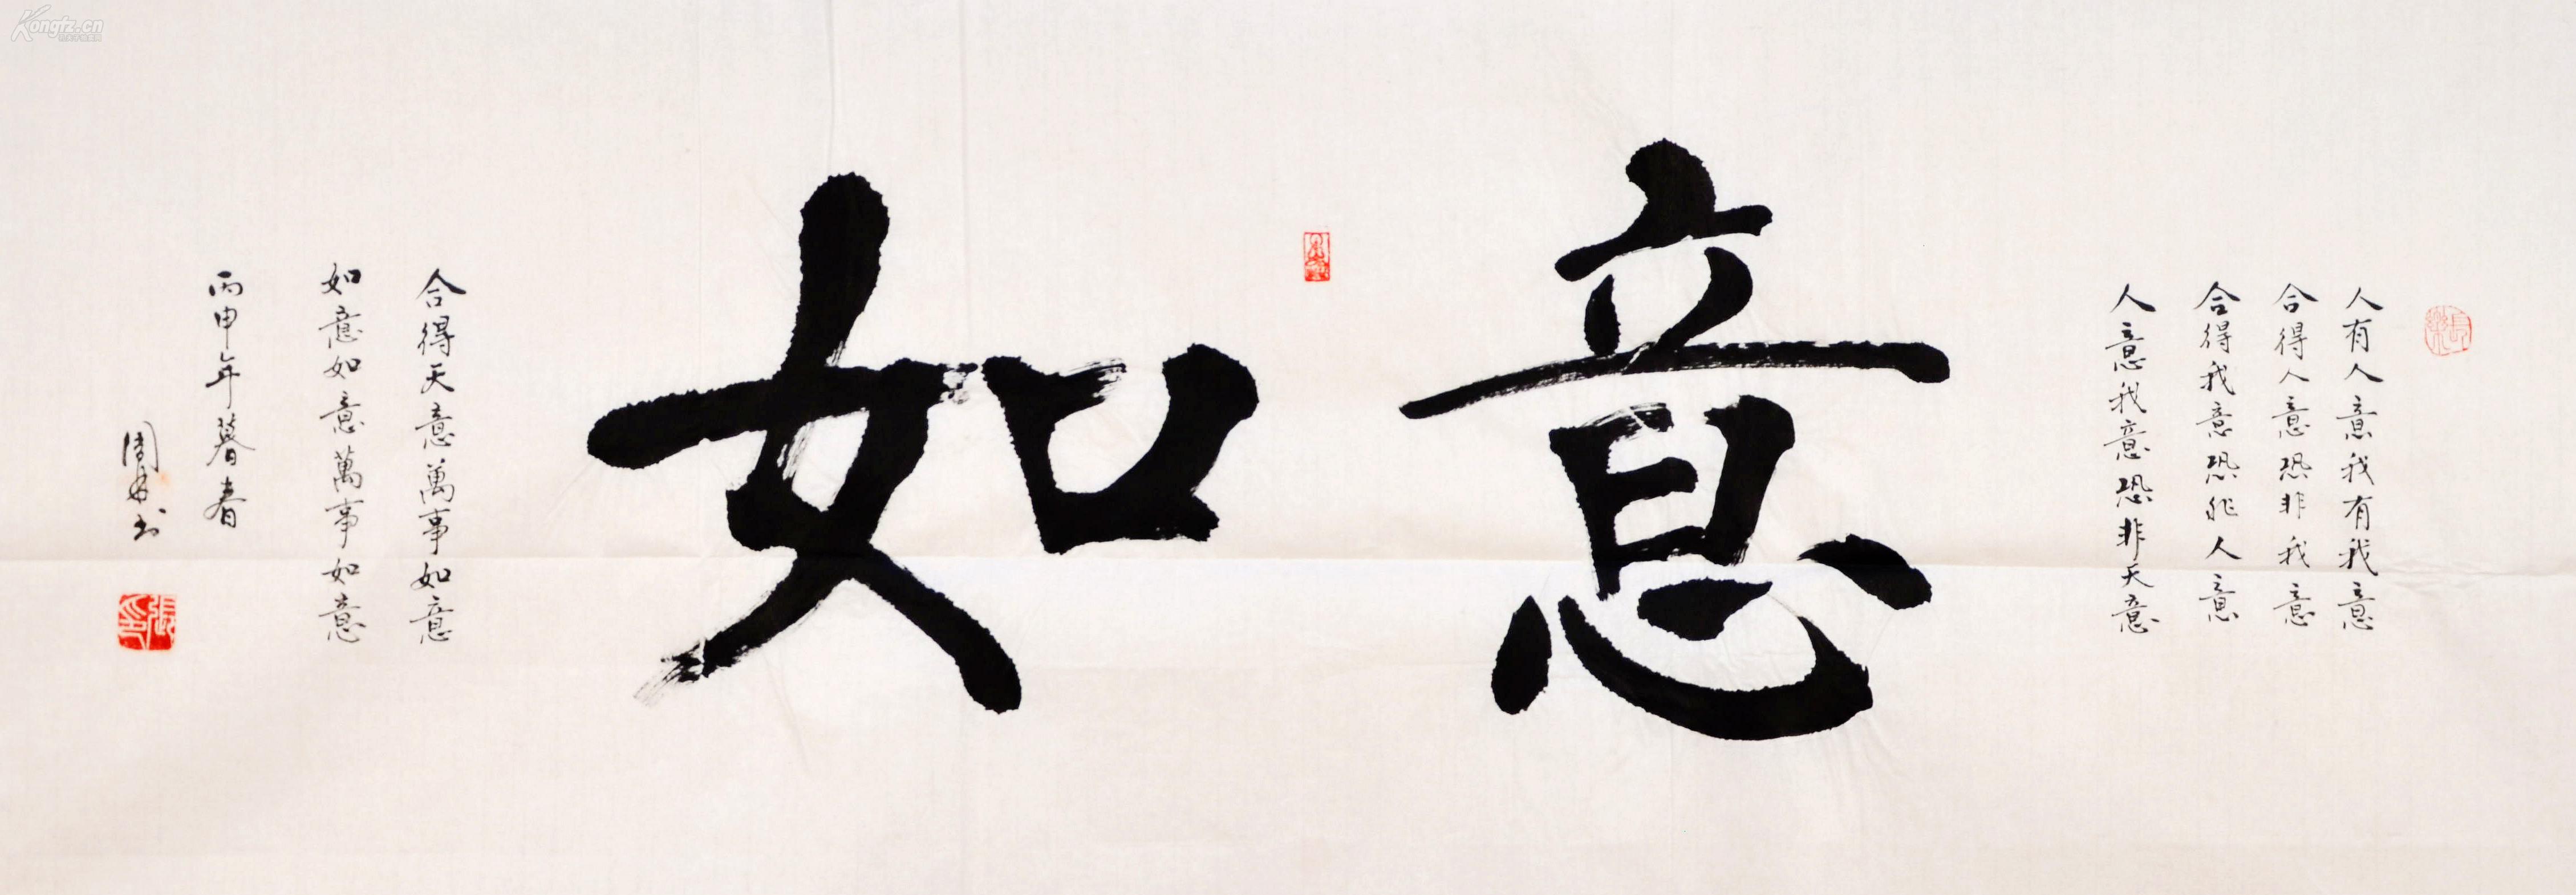 Kongfz.cn
長樂
人有人意我有我意
合得人意恐非我意
合得我意恐非人意
人意我意恐非天意
如意
合得天意萬事如意
如意如意萬事如意
丙申年暮春